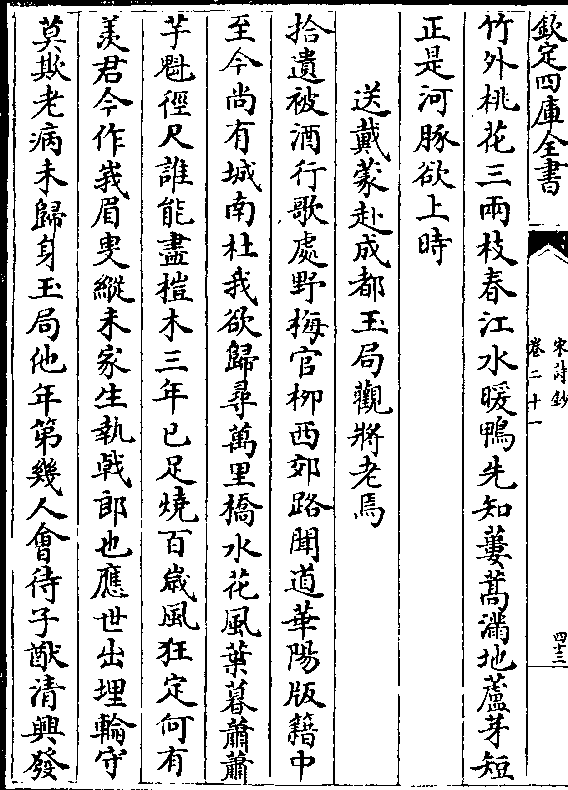 欽定四庫全書
宋詩鈔
卷二十一
四十三
竹外桃花三兩枝春江水暖鴨先知蔞蒿滿地蘆芽短
正是河豚欲上時
送戴蒙赴成都玉局觀將老焉
拾遺被酒行歌處野梅官栁西郊路聞道華陽版籍中
至今尚有城南杜我欲歸尋萬里橋水花風葉暮蕭蕭
芋魁徑尺誰能盡榿木三年已足燒百歲風狂定何有
羡君今作峩眉叟縱未家生執㦸郎也應世出埋輪守
莫欺老病未歸身玉局他年第幾人會待子猷清興發